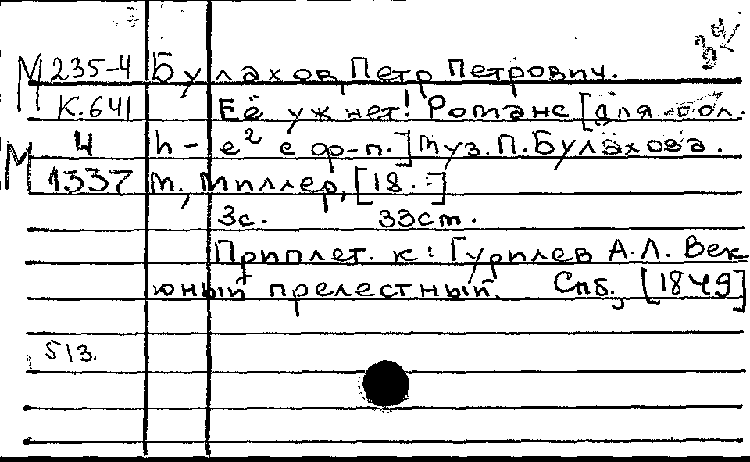 М 235-4 Булахов, Петр Петрович.
К.641 Её уж нет! Романс [для
4 h - e² с ф-п.] Муз. П. Булахова.
М 1337 М., Миллер, [18. -]
3с. 33ст.
Приплет. к: Гурилев А.Л. Век
юный прелестный. Спб., [1849]
513.